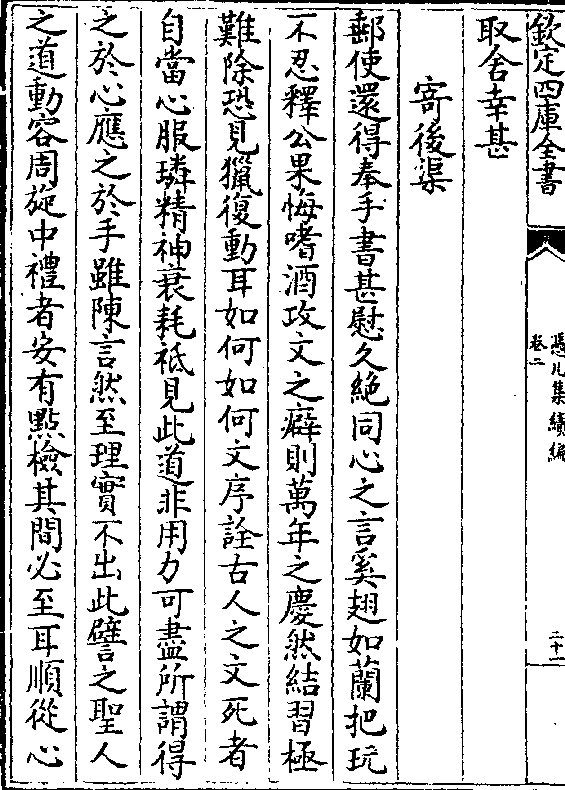 欽定四庫全書
憑几集續編
卷二
二十一
取舍幸甚
寄後渠
郵使還得奉手書甚慰久絶同心之言奚翅如蘭把玩
不忍釋公果悔嗜酒攻文之癖則萬年之慶然結習極
難除恐見獵復動耳如何如何文序詮古人之文死者
自當心服璘精神衰耗祗見此道非用力可盡所謂得
之於心應之於手雖陳言然至理實不出此譬之聖人
之道動容周旋中禮者安有㸃檢其間必至耳順從心